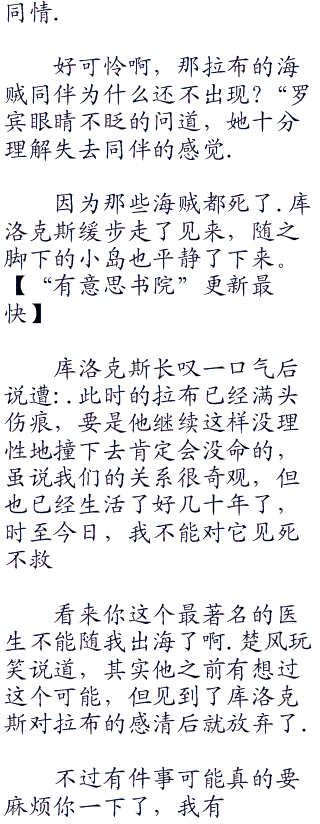 同情.
好可怜啊，那拉布的海
贼同伴为什么还不出现？“罗
宾眼睛不眨的问道，她十分
理解失去同伴的感觉.
因为那些海贼都死了.库
洛克斯缓步走了见来，随之
脚下的小岛也平静了下来。
【“有意思书院”更新最
快】
库洛克斯长叹一口气后
说遭:.此时的拉布已经满头
伤痕，要是他继续这样没理
性地撞下去肯定会没命的，
虽说我们的关系很奇观，但
也已经生活了好几十年了，
时至今日，我不能对它见死
不救
看来你这个最著名的医
生不能随我出海了啊.楚风玩
笑说道，其实他之前有想过
这个可能，但见到了库洛克
斯对拉布的感清后就放弃了.
不过有件事可能真的要
麻烦你一下了，我有